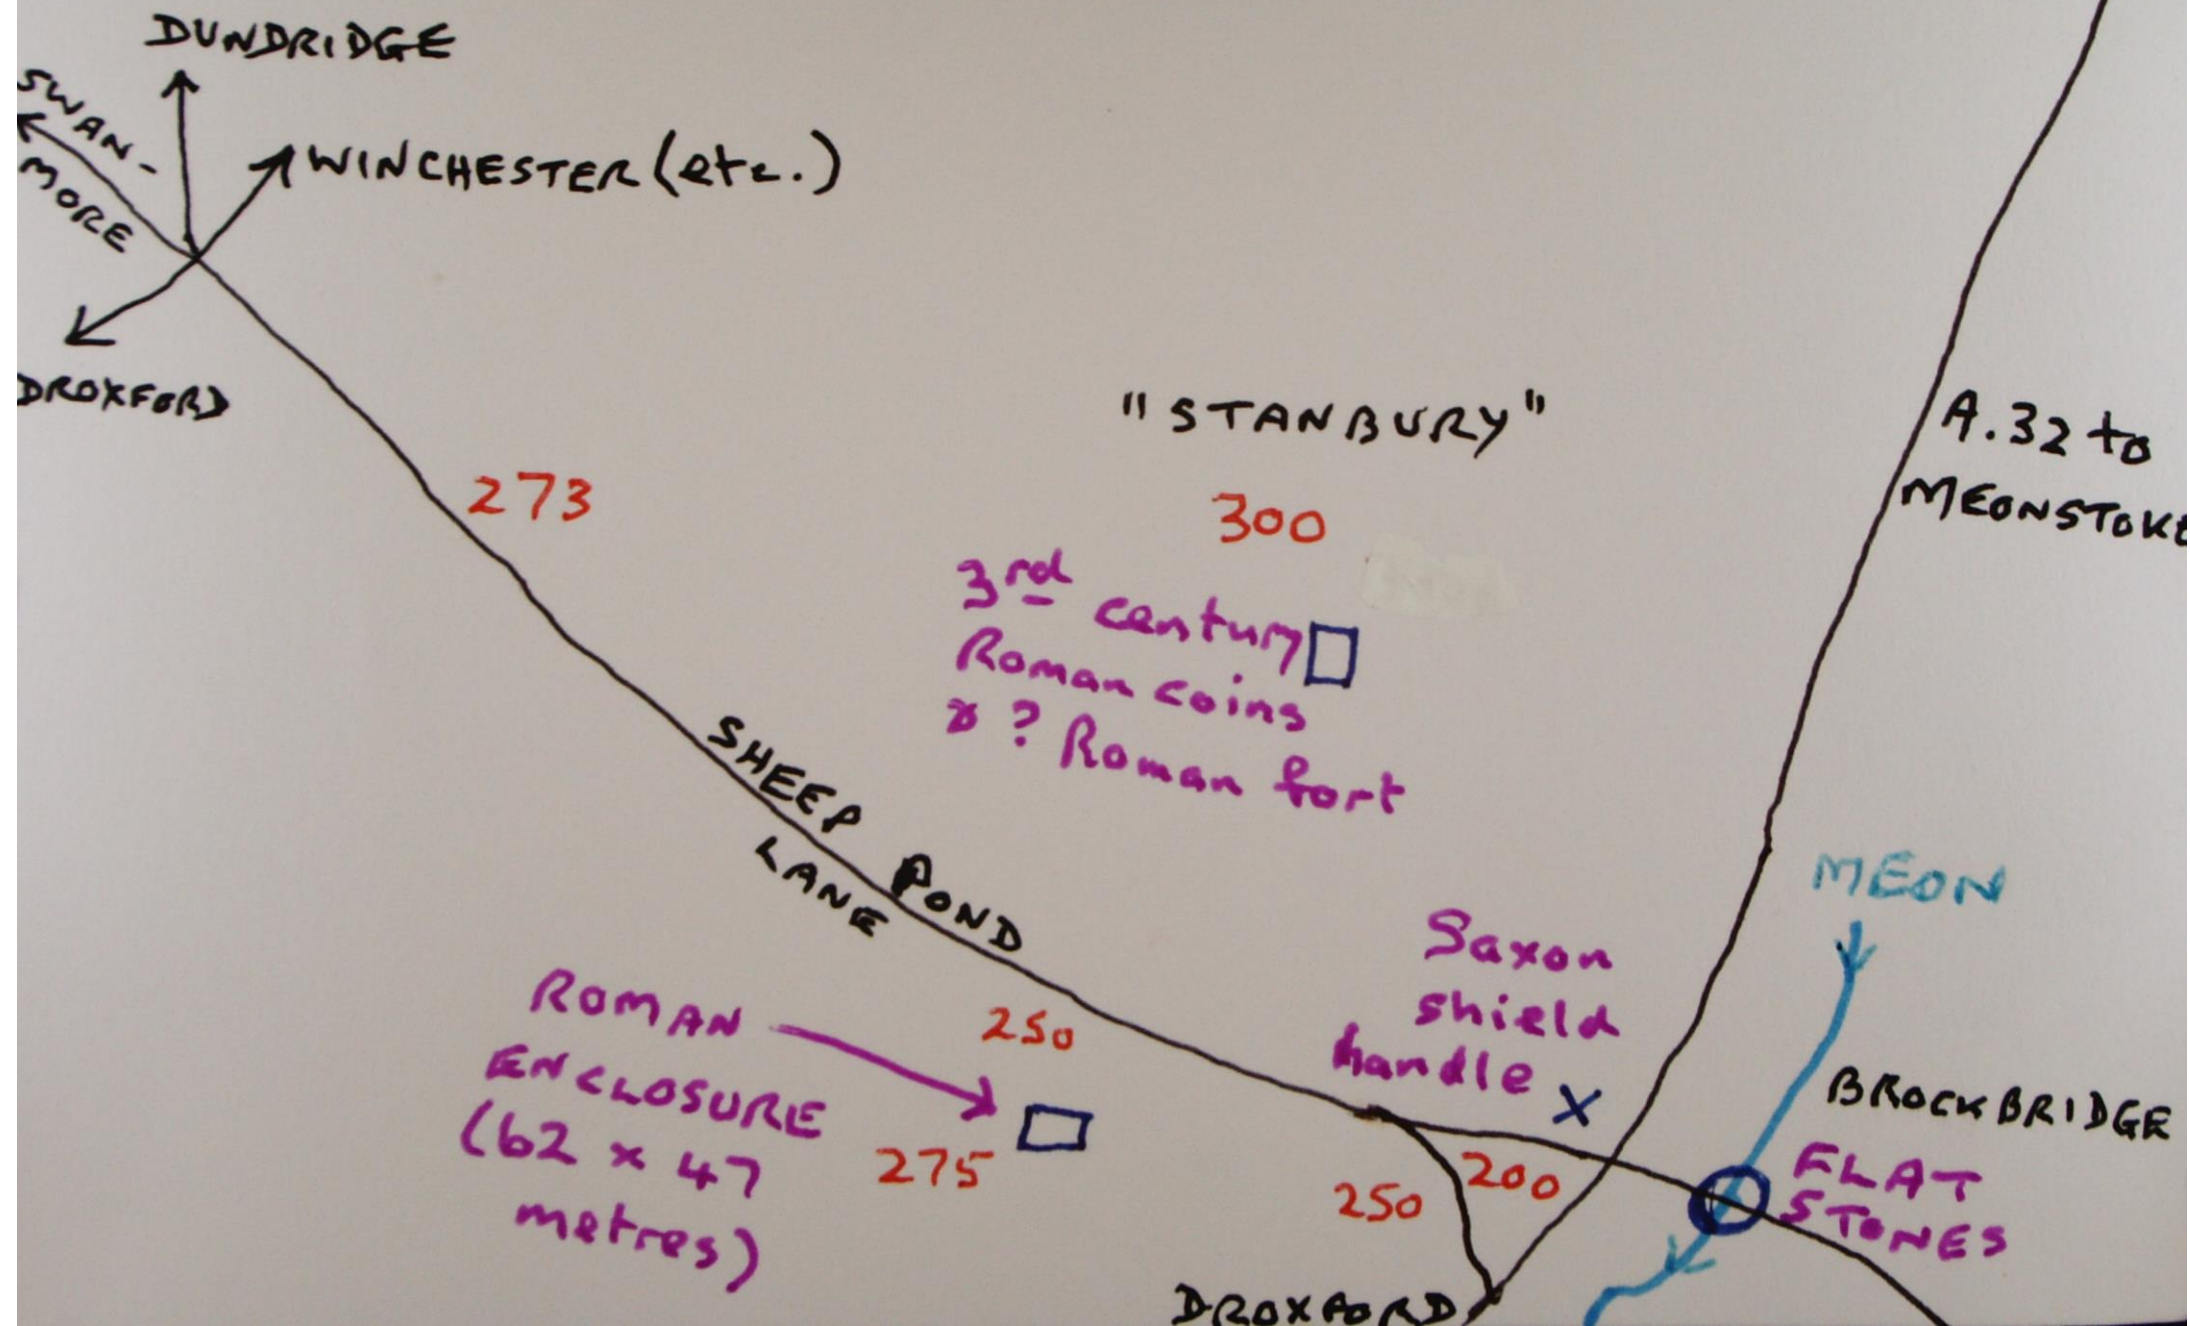 DUNDRIDGE
SWAN-
MORE
WINCHESTER (etc.)
DROXFORD
"STANBURY"
A.32 to
MEONSTOKE
273
300
3rd century
Roman coins
& ? Roman fort
SHEEP POND
LANE
MEON
Saxon
shield
handle X
ROMAN
ENCLOSURE
(62 x 47
metres)
250
275
BROCKBRIDGE
FLAT
STONES
200
250
DROXFORD